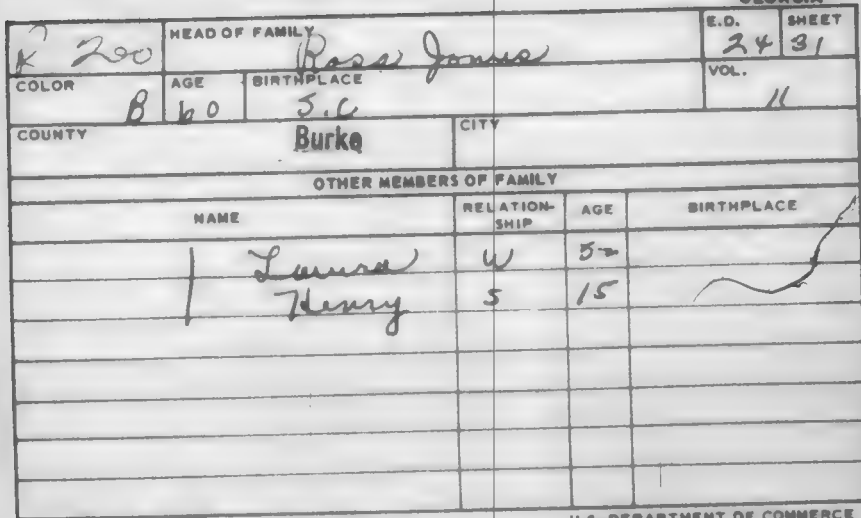 GEORGIA
K 200 HEAD OF FAMILY E.D. 24 SHEET 31
COLOR B AGE 60 BIRTHPLACE S.C VOL. 11
COUNTY Burke CITY
OTHER MEMBERS OF FAMILY
NAME RELATION-SHIP AGE BIRTHPLACE
Laura W
Henry S 15
U.S. DEPARTMENT OF COMMERCE